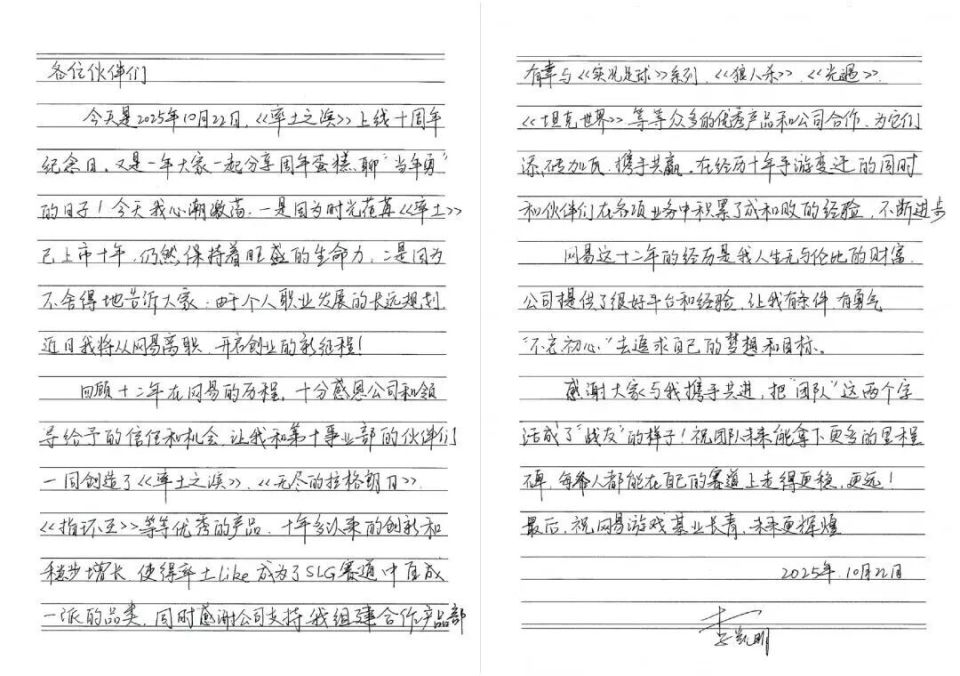 各位伙伴们
今天是2025年10月22日,《率土之滨》上线十周年
纪念日,又是一年大家一起分享周年蛋糕,聊"当年勇"
的日子!今天我心潮激荡,一是因为时光荏苒《率土》
已上市十年,仍然保持着旺盛的生命力,二是因为
不舍得地告诉大家:由于个人职业发展的长远规划,
近日我将从网易离职,开启创业的新征程!
回顾十二年在网易的历程,十分感恩公司和领
导给予的信任和机会,让我和第十事业部的伙伴们
一同创造了《率土之滨》、《无尽的拉格朗日》、
《指环王》等等优秀的产品,十年多以来的创新和
稳步增长,使得率土Like成为了SLG赛道中自成
一派的品类,同时感谢公司支持我组建合作产品部
有幸与《实况足球》系列、《狼人杀》、《光遇》、
《坦克世界》等等众多的优秀产品和公司合作,为它们
添砖加瓦,携手共赢。在经历十年手游变迁的同时
和伙伴们在各项业务中积累了成和败的经验,不断进步
网易这十二年的经历是我人生无与伦比的财富,
公司提供了很好平台和经验,让我有条件,有勇气
"不忘初心"去追求自己的梦想和目标。
感谢大家与我携手共进,把"团队"这两个字
活成了"战友"的样子!祝团队未来能拿下更多的里程
碑,每个人都能在自己的赛道上走得更稳,更远!
最后,祝网易游戏基业长青,未来更辉煌
2025年10月22日
李凯明